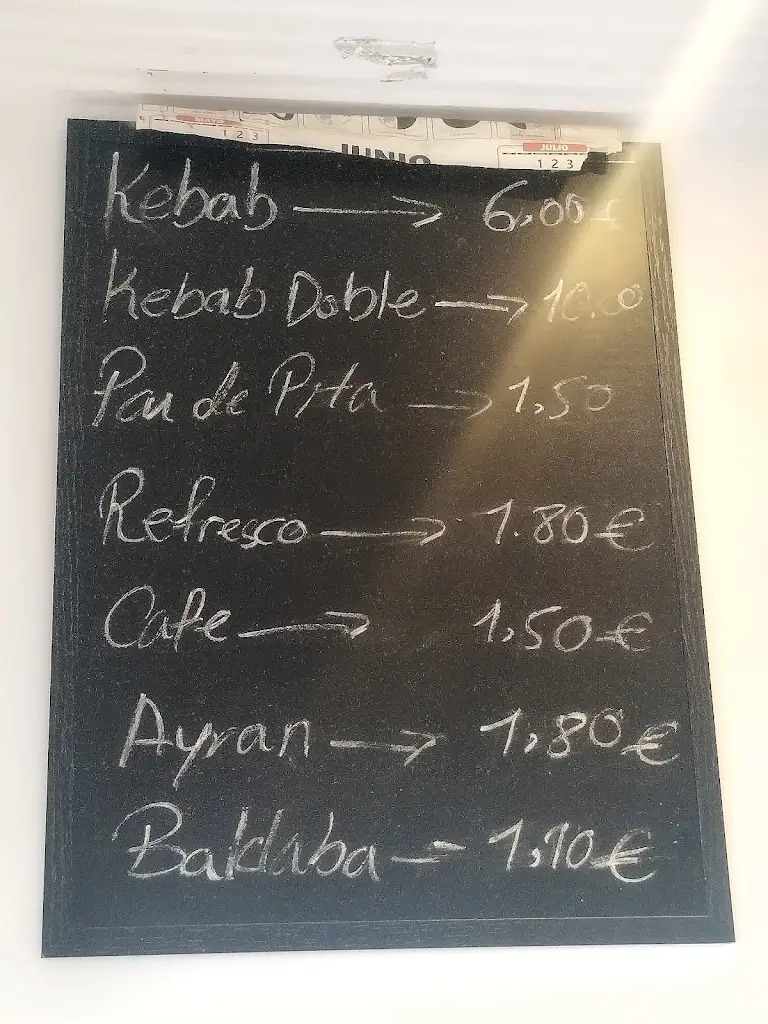 MAYO
1 2 3
JUNIO
JULIO
1 2 3
Kebab → 6,00 €
Kebab Doble → 10.00
Pan de Pita → 1,50
Refresco → 1.80 €
Cafe → 1,50 €
Ayran → 1,80 €
Baklaba → 1,10 €